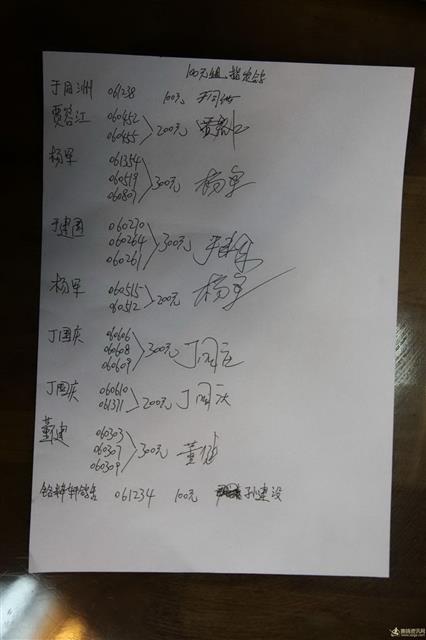 100元组 指定鸽
于同洲 061238 100元 于同洲
贾容江 060452
060455 200元
杨军 061354
060519 300元 杨军
060807
于建国 060270
060264 300元
060261
杨军 060515 200元 杨军
060512
丁国庆 060606
060608 300元 丁国庆
060609
丁国庆 060610
061371 200元 丁国庆
董建 060303
060307 300元 董建
060309
061234 100元 孙建设